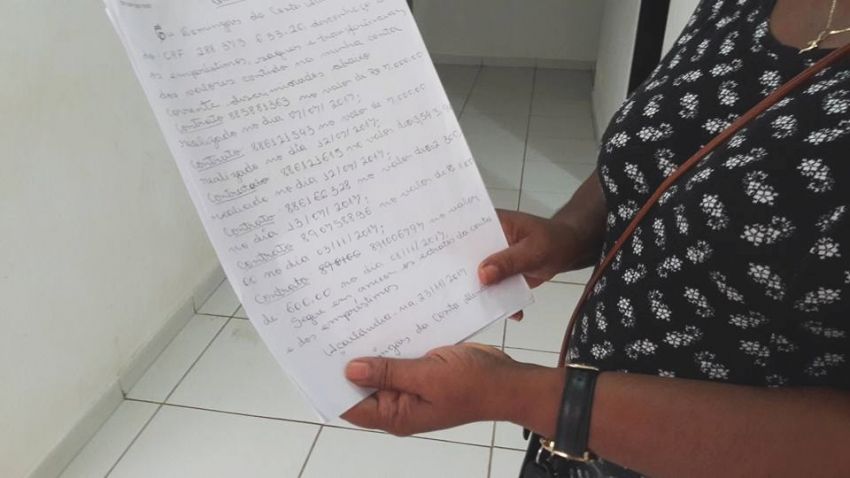 Eu Domingas da Conto
do CPF 288 373 6 53.20 desconheço
os empréstimos, saques e transferências
dos valores contido na minha conta
corrente discriminados abaixo
Contrato 885881363 no valor de R$ 7.000.00
realizado no dia 07/07/2017;
Contrato 886121543 no valor de 7.000.00
realizado no dia 12/07/2017;
Contrato 886121615 no valor de
realizado no dia 12/07/2017;
Contrato 886166328 no valor de
no dia 13/07/2017;
Contrato 890758896 no valor de
no dia 03/11/2017;
Contrato 891006797 no valor
de 600.00 no dia 08/11/2017.
Segue em anexo os extratos da conta
e dos empréstimos
23/11/2017
da Conto